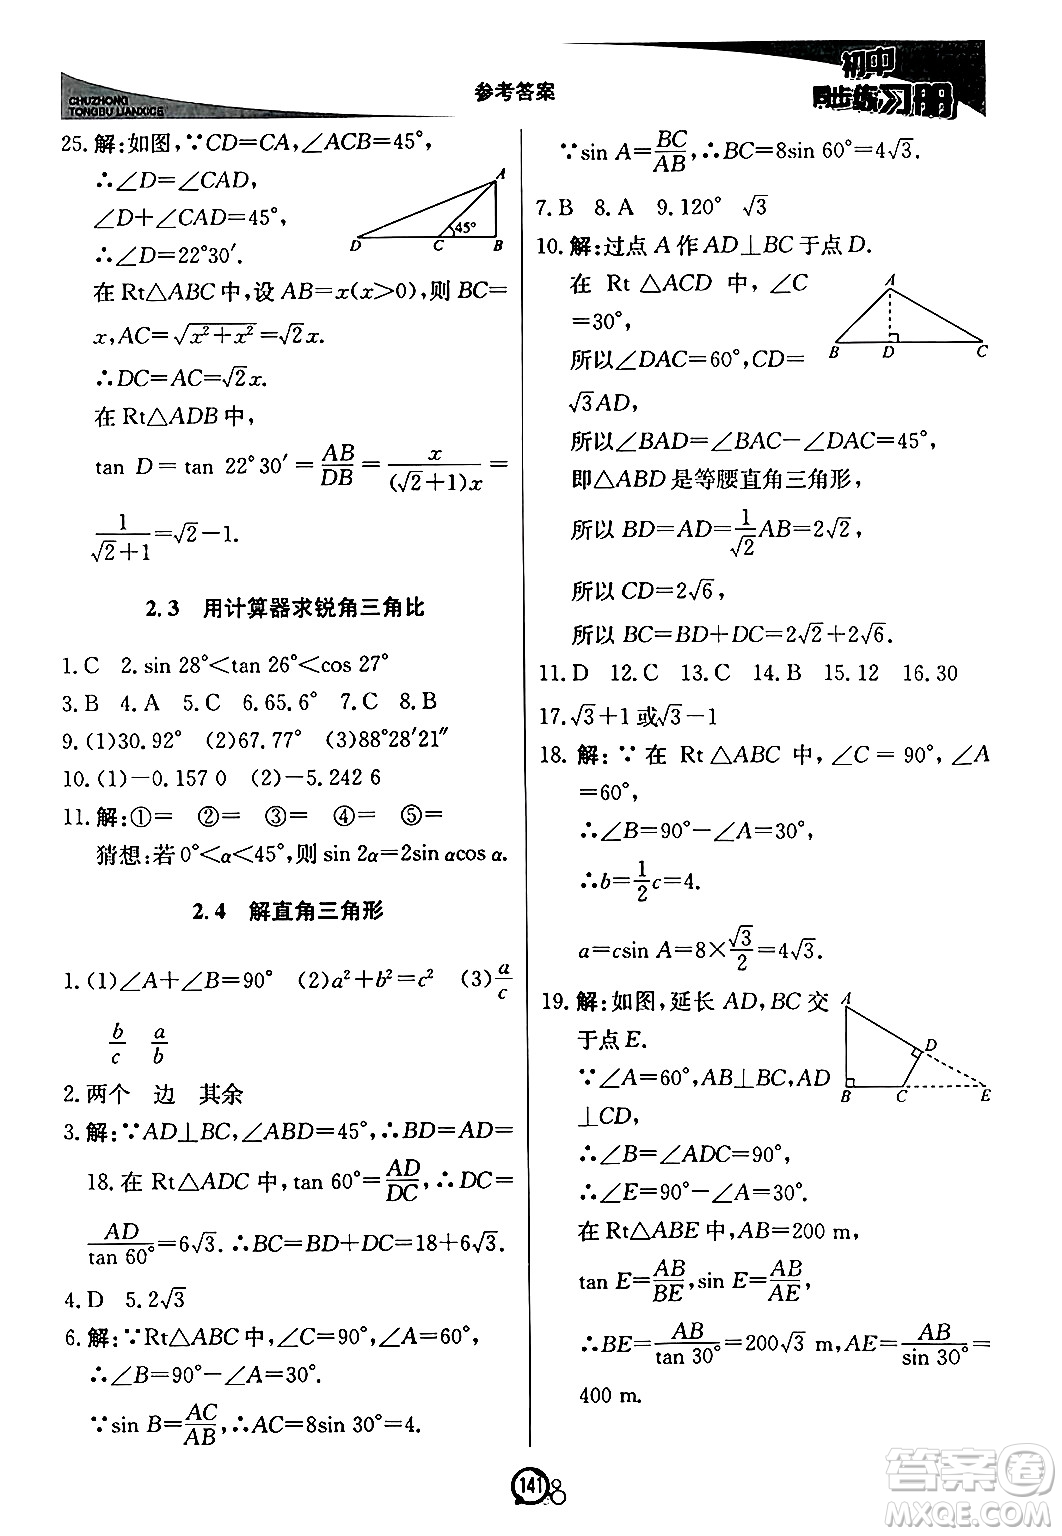 CHUZHONG
TONGBU LIANXICE
参考答案
初中
同步练习册
25. 解:如图,∵CD=CA,∠ACB=45°,
∴∠D=∠CAD,
∠D+∠CAD=45°,
∴∠D=22°30′.
A
45°
D C B
在 Rt△ABC 中,设 AB=x(x>0),则 BC=
x,AC=√(x²+x²)=√2x.
∴DC=AC=√2x.
在 Rt△ADB 中,
tan D=tan 22°30′=AB/DB=x/((√2+1)x)=
1/(√2+1)=√2-1.
2.3 用计算器求锐角三角比
1. C 2. sin 28°<tan 26°<cos 27°
3. B 4. A 5. C 6. 65.6° 7. C 8. B
9. (1)30.92° (2)67.77° (3)88°28′21″
10. (1)-0.157 0 (2)-5.242 6
11. 解:①= ②= ③= ④= ⑤=
猜想:若 0°<α<45°,则 sin 2α=2sin αcos α.
2.4 解直角三角形
1. (1)∠A+∠B=90° (2)a²+b²=c² (3)a/c
b/c a/b
2. 两个 边 其余
3. 解:∵AD⊥BC,∠ABD=45°,∴BD=AD=
18. 在 Rt△ADC 中,tan 60°=AD/DC,∴DC=
AD/tan 60°=6√3.∴BC=BD+DC=18+6√3.
4. D 5. 2√3
6. 解:∵Rt△ABC 中,∠C=90°,∠A=60°,
∴∠B=90°-∠A=30°.
∵sin B=AC/AB,∴AC=8sin 30°=4.
∵sin A=BC/AB,∴BC=8sin 60°=4√3.
7. B 8. A 9. 120° √3
10. 解:过点 A 作 AD⊥BC 于点 D.
在 Rt △ACD 中,∠C
=30°,
所以∠DAC=60°,CD=
√3AD,
A
B D C
所以∠BAD=∠BAC-∠DAC=45°,
即△ABD 是等腰直角三角形,
所以 BD=AD=1/√2AB=2√2,
所以 CD=2√6.
所以 BC=BD+DC=2√2+2√6.
11. D 12. C 13. C 14. B 15. 12 16. 30
17. √3+1 或√3-1
18. 解:∵ 在 Rt △ABC 中,∠C=90°,∠A
=60°,
∴∠B=90°-∠A=30°,
∴b=1/2c=4.
a=csin A=8×√3/2=4√3.
19. 解:如图,延长 AD,BC 交
于点 E.
∵∠A=60°,AB⊥BC,AD
⊥CD,
A
D
B C E
∴∠B=∠ADC=90°,
∴∠E=90°-∠A=30°.
在 Rt△ABE 中,AB=200 m,
tan E=AB/BE,sin E=AB/AE,
∴BE=AB/tan 30°=200√3 m,AE=AB/sin 30°=
400 m.
141
答案圈
MXQE.COM